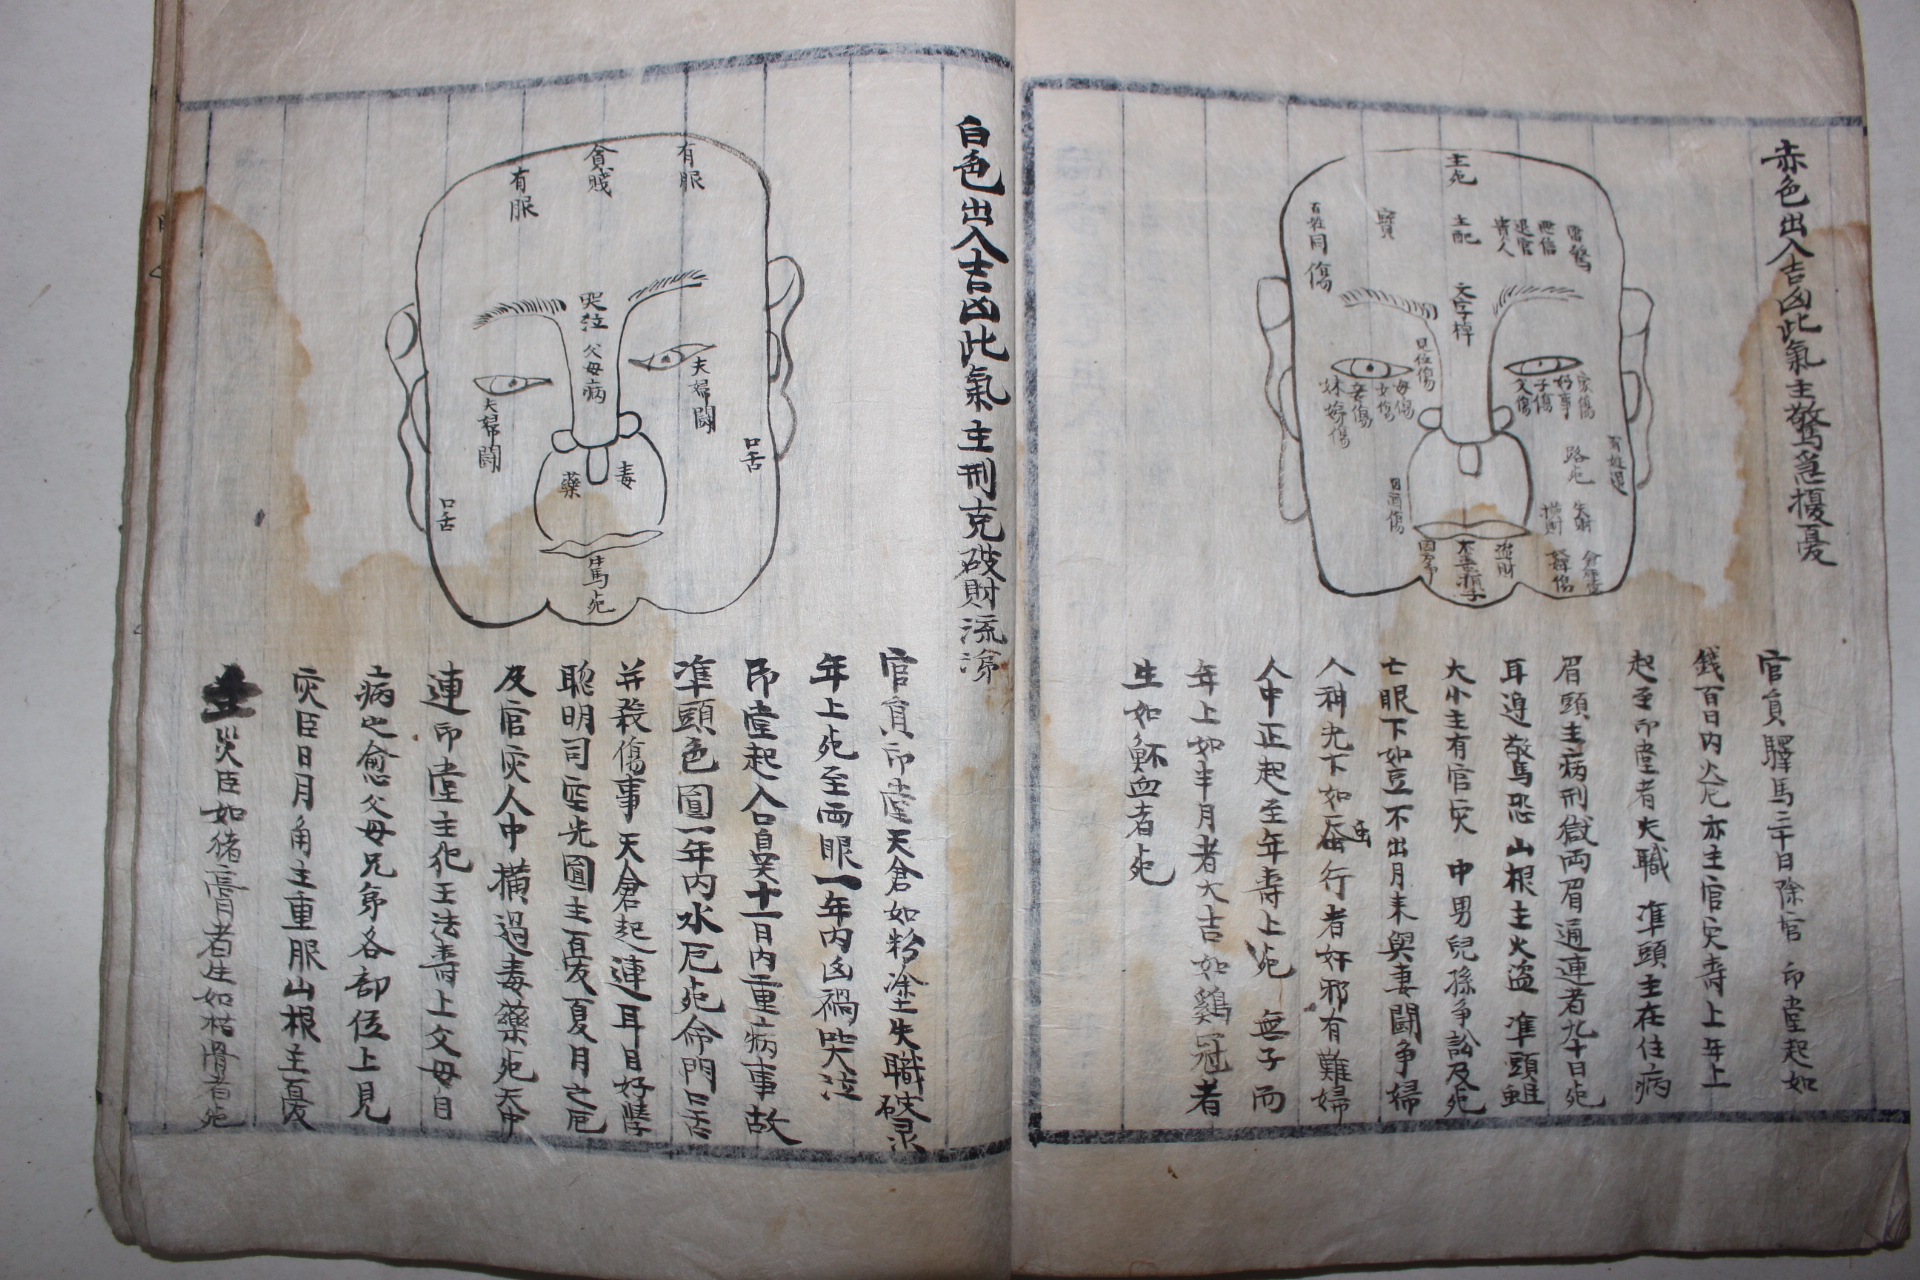 赤色出入吉凶此氣主驚急擾憂
主死
主配
貴人
退官
天字悼
百姓同傷
兄伍傷
母傷
女傷
妾傷
妹嫁傷
父傷
子傷
好事
路死
失財
橫財
盜財
官員驛馬二十日除官 印堂起如
錢百日內火厄亦主官灾壽上年上
起至印堂者失職 準頭主在住病
眉頭主病刑獄兩眉通連者九十日死
耳邉驚恐山根主火盜 準頭蛆
大小主有官灾 中男兒孫爭訟及死
七眼下如豆不出月来與妻鬪争婦
人神光下如蚕虫行者奸邪有難婦
人中正起至年壽上死 無子而
年上如半月者大吉如鷄冠者
生如衃血者死
白色出入吉凶此氣主刑克破財流涕
有服
貧賤
有服
哭泣
父母病
夫婦鬪
夫婦鬪
口舌
口舌
毒
藥
牛馬死
官員印堂天倉如粉塗失職破录
年上死至両眼一年內凶禍哭泣
印堂起入口鼻十一月內重病事故
準頭色圓一年內水厄死命門口舌
并殺傷事天倉起連耳目好悲
聡明司空光圓主憂夏月之厄
及官灾人中横過毒藥死天中
連印堂主犯王法壽上父母目
病也愈父母兄弟各部位上見
灾臣日月角主重服山根主憂
災臣如猪膏者生如枯骨者死